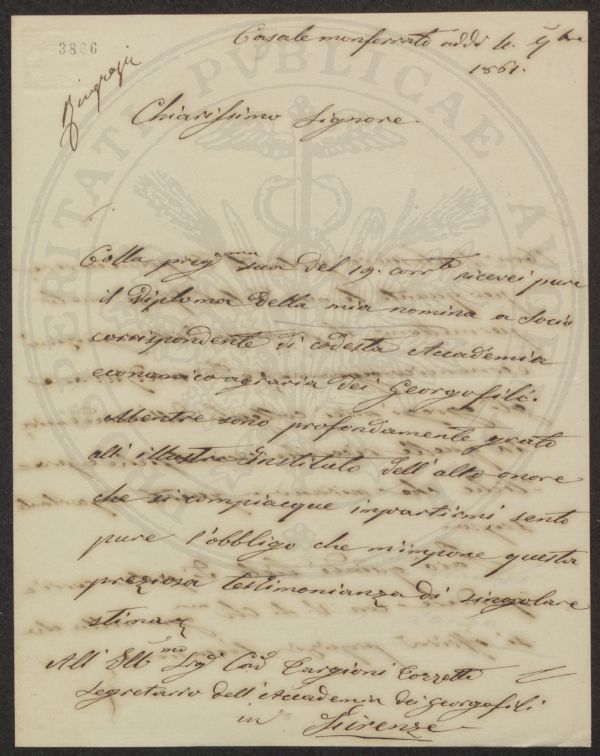 3806
Ringrazi
Casale monferrato addì 7bre
1861.
Chiarissimo Signore.
Colla preg.ma sua del 19. corr.te ricevei pure
il Diploma della mia nomina a Socio
corrispondente di codesta Accademia
economico agraria dei Georgofili.
Mentre sono profondamente grato
all'illustre Instituto dell'alto onore
che si compiacque impartirmi, sento
pure l'obbligo che m'impone questa
preziosa testimonianza di singolare
stima
All'Ill.mo Sig.r Cav. Targioni Tozzetti
Segretario dell'Accademia dei Georgofili
in Firenze
PROSPERITATI PUBLICAE AUGENDAE